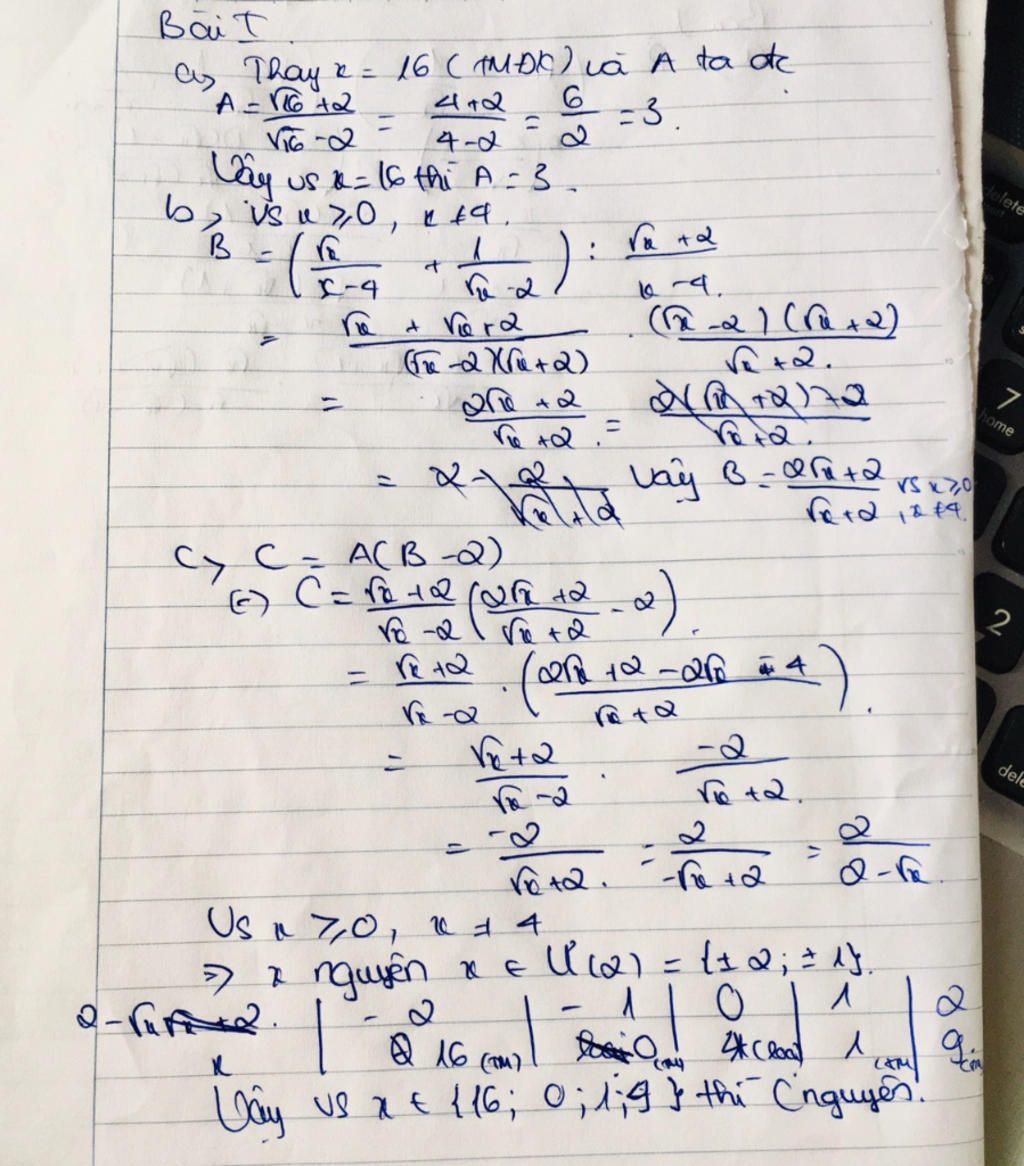 Bài I
a, Thay x = 16 (TMĐK) và A ta đc
A = (√16 + 2)/(√16 - 2) = (4+2)/(4-2) = 6/2 = 3.
Vậy vs x = 16 thì A = 3.
b, vs x ≥ 0, x ≠ 4.
B = (√x/(x-4) + 1/(√x - 2)) : (√x + 2)/(x - 4).
= (√x + √x + 2)/((√x - 2)(√x + 2)) · ((√x - 2)(√x + 2))/(√x + 2).
= (2√x + 2)/(√x + 2). =
= Vậy B = (2√x + 2)/(√x + 2) vs x ≥ 0, x ≠ 4.
C, C = A(B - 2)
(=) C = (√x + 2)/(√x - 2) ((2√x + 2)/(√x + 2) - 2).
= (√x + 2)/(√x - 2) · ((2√x + 2 - 2√x - 4)/(√x + 2)).
= (√x + 2)/(√x - 2) · -2/(√x + 2).
= -2/(√x + 2). = 2/(-√x + 2) = 2/(2 - √x).
Vs x ≥ 0, x ≠ 4
⇒ x nguyên x ∈ Ư(2) = {±2; ±1}.
2 - √x | -2 | -1 | 0 | 1 | 2
x | 16 (TM) | 0 (TM) | 4 (loại) | 1 (TM) | 9 (TM)
Vậy vs x ∈ {16; 0; 1; 9} thì C nguyên.